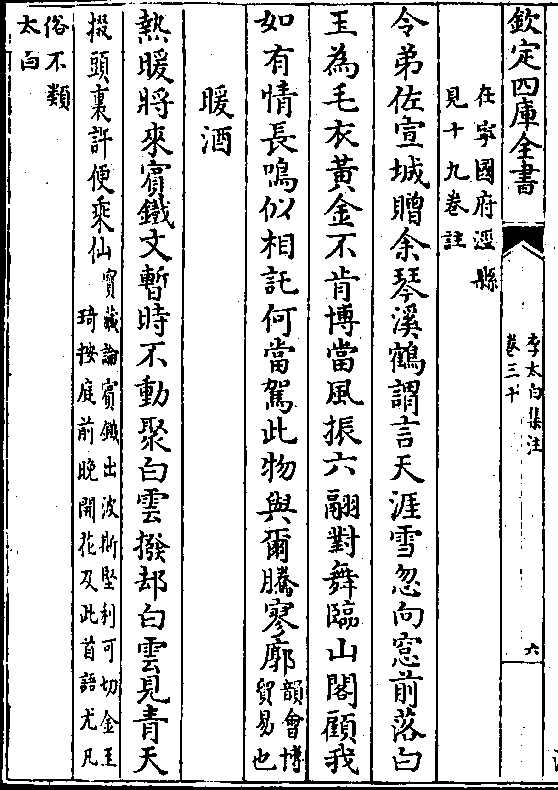 欽定四庫全書
李太白集注
卷三十
六
在寧國府涇縣
見十九卷註
令弟佐宣城贈余琴溪鶴謂言天涯雪忽向窓前落白
玉為毛衣黃金不肯博當風振六翮對舞臨山閣顧我
如有情長鳴似相託何當駕此物與爾騰寥廓
韻會博
貿易也
暖酒
熱暖將來賓鐵文暫時不動聚白雲撥却白雲見青天
掇頭裏許便乘仙
寳藏論賓鐵出波斯堅利可切金玉
琦按庭前晚開花及此首語尤凡
俗不類
太白